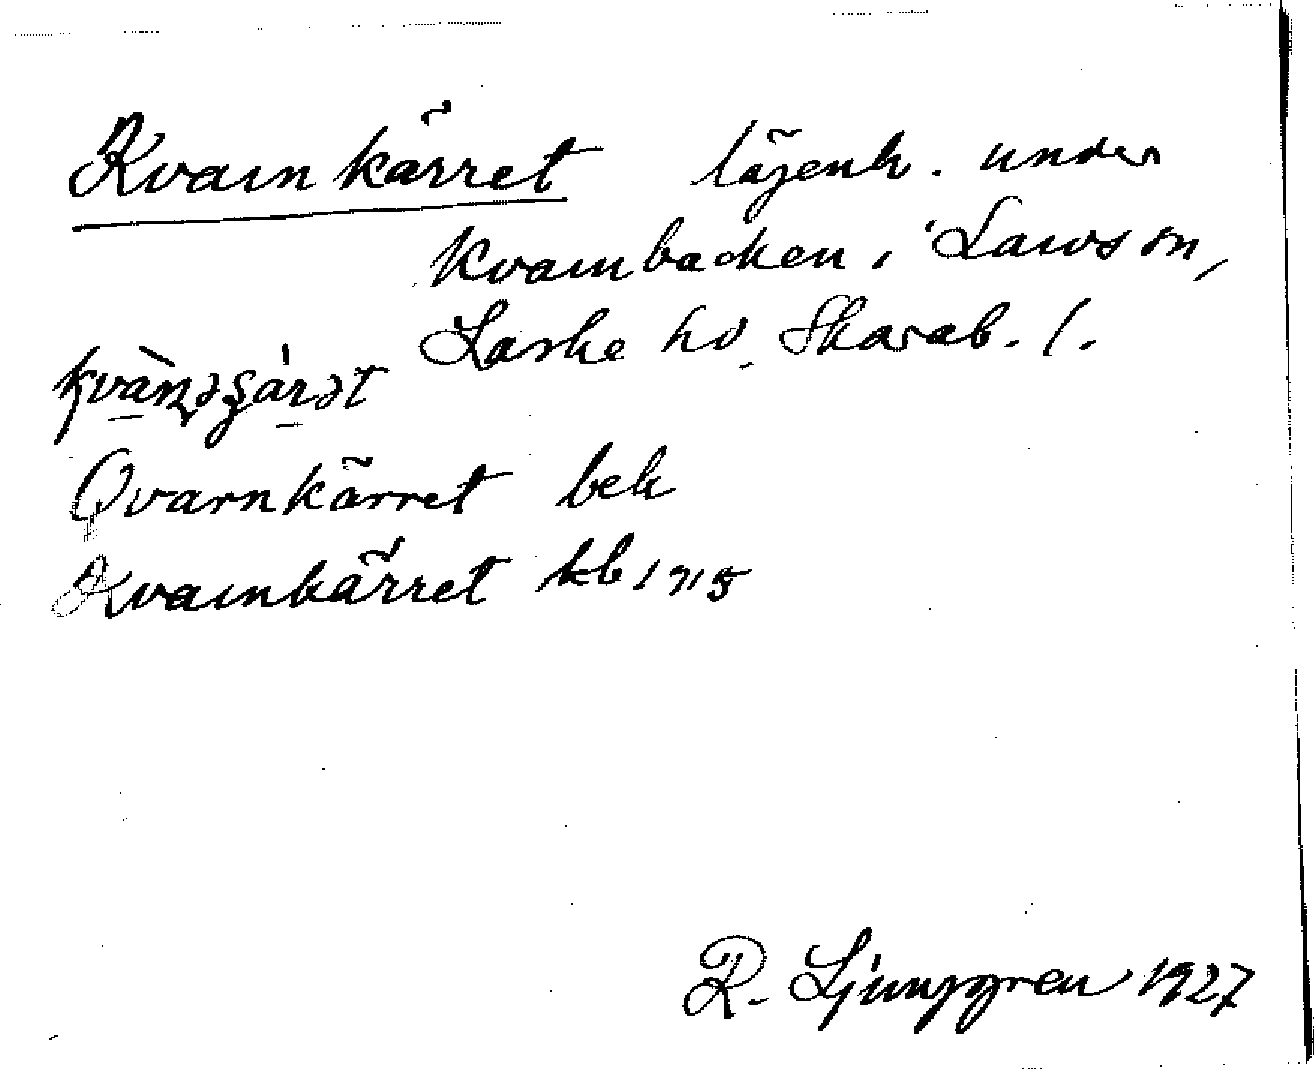 Kvarnkärret lägenh. under
Kvarnbacken i Larvs sn,
Laske hd. Skarab. l.
Qvarnkärret bek
Kvarnkärret kb 1715
R. Ljunggren 1927